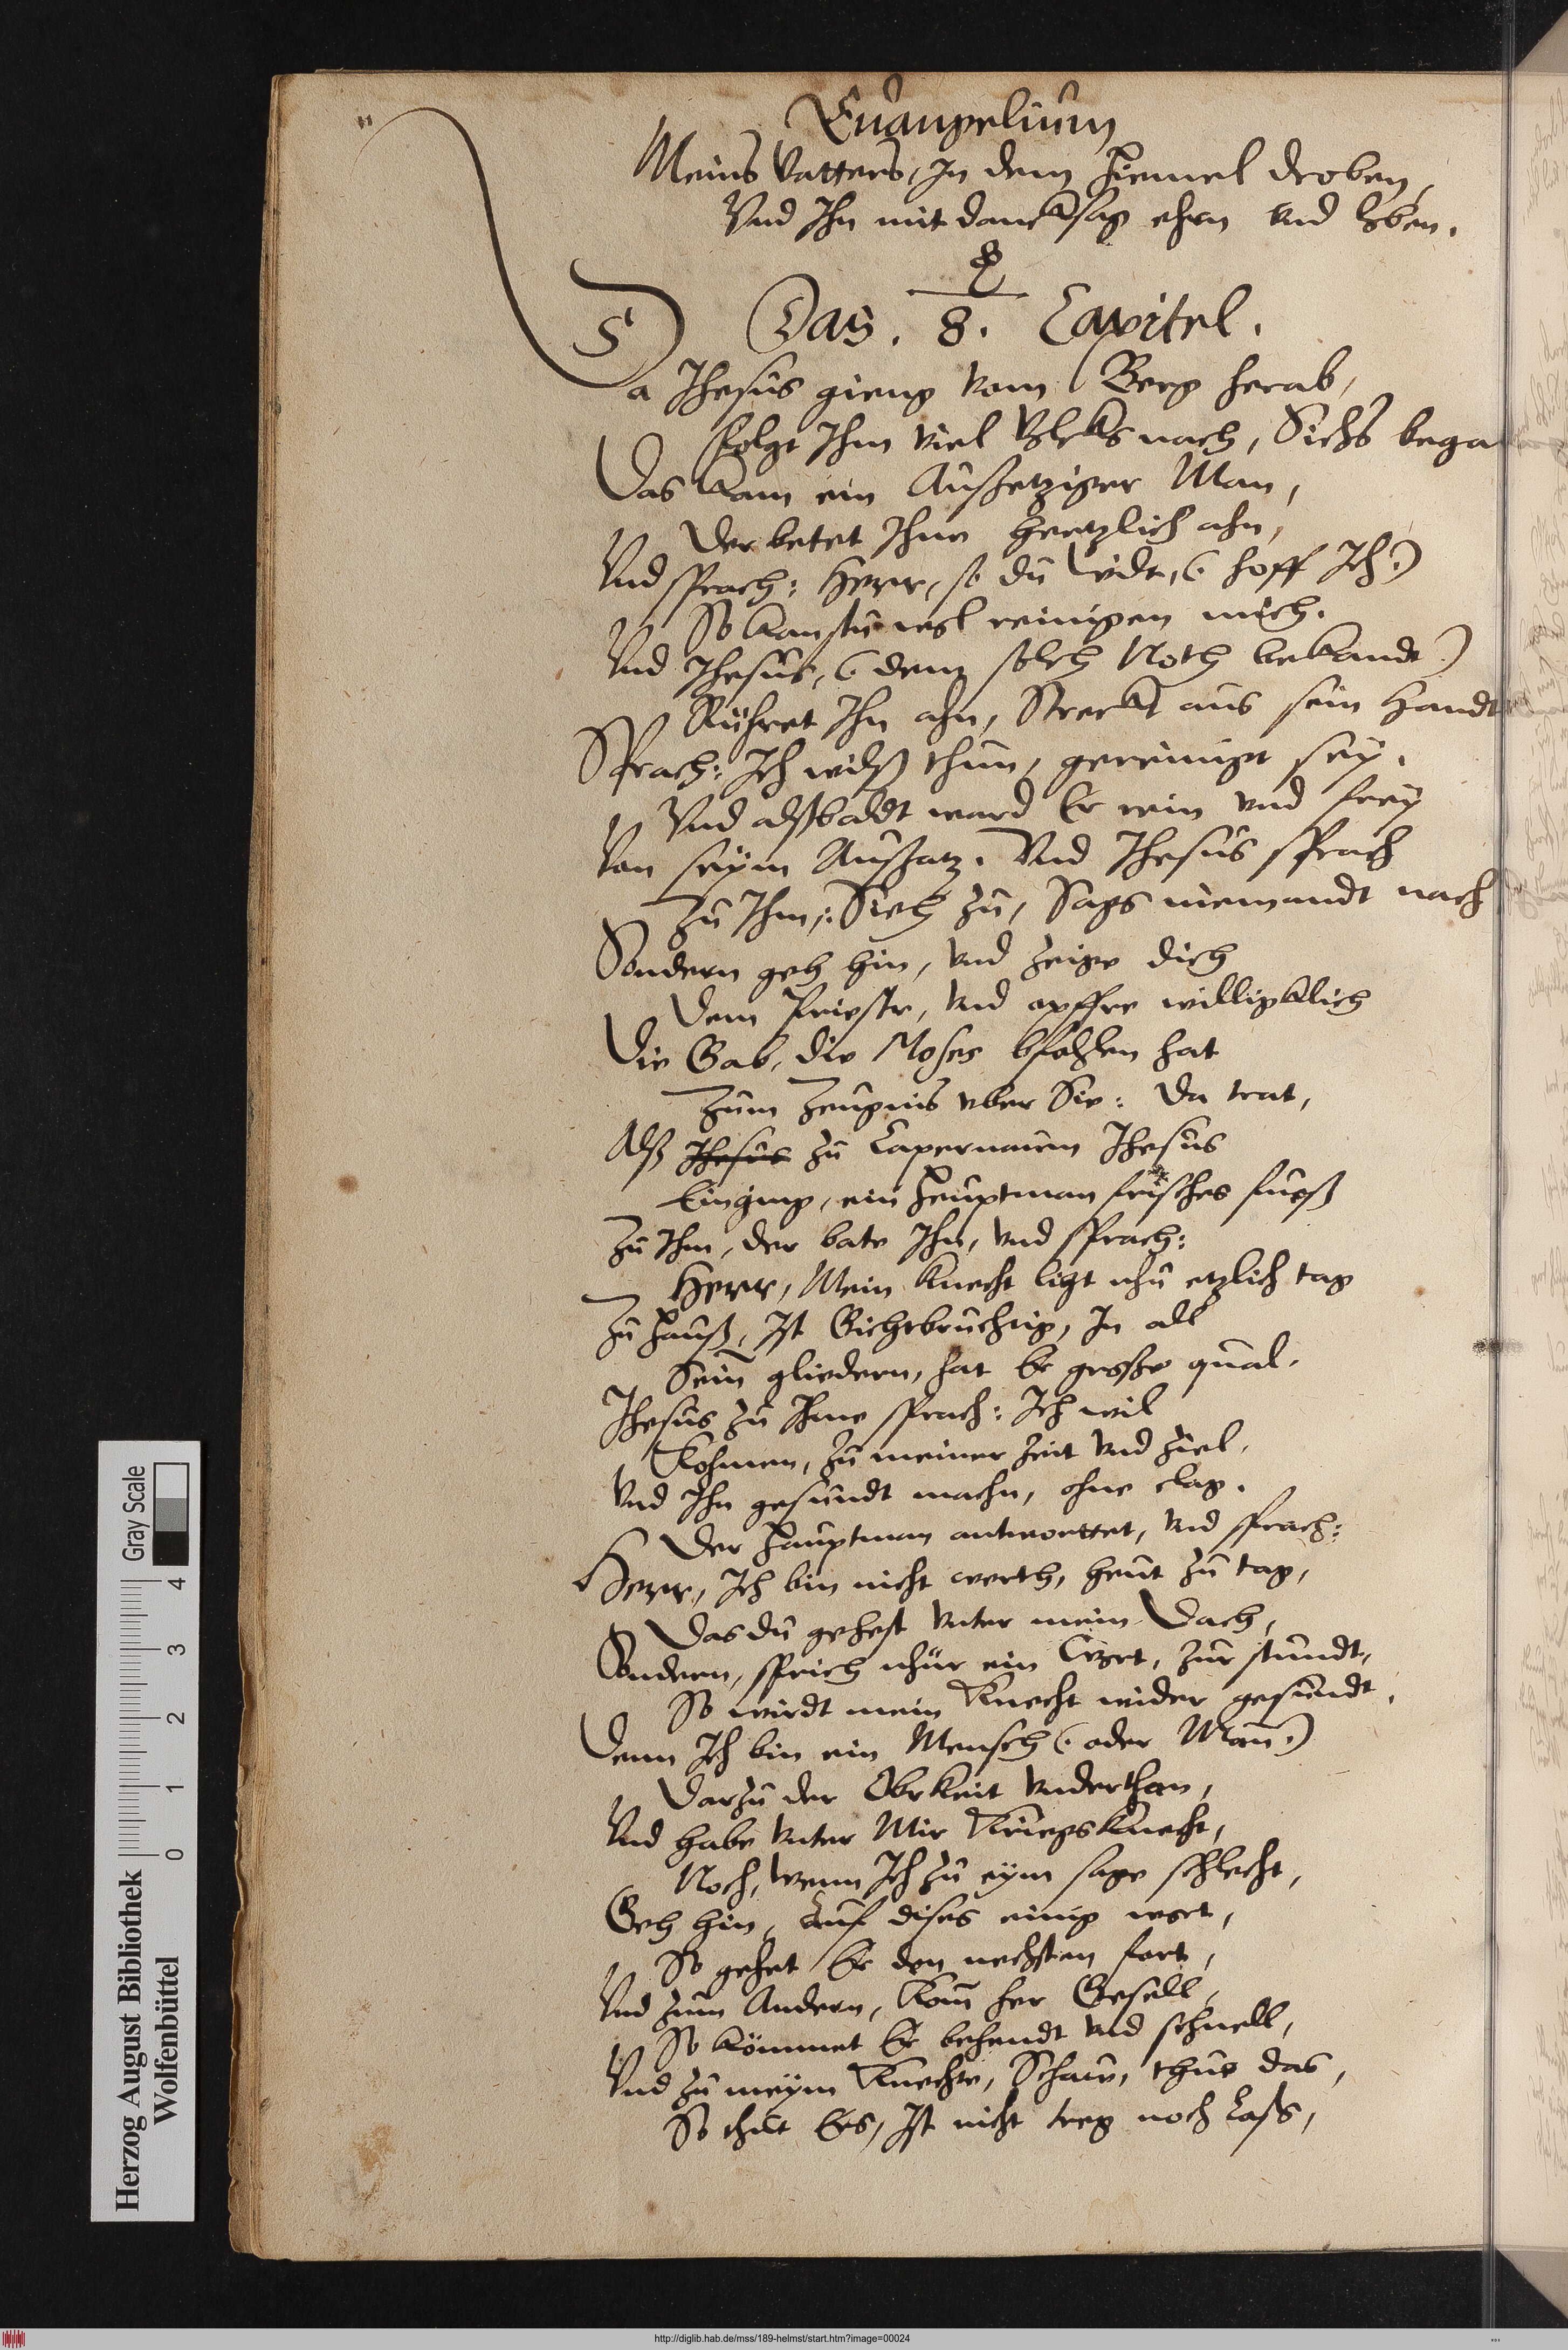 Euangelium
Meins Vatters, In dem Himmel droben,
Vnd Ihn mit dancksag ehrn vnd loben.
Das . 8. Capitel.
Da Jhesus gieng vom Berg herab,
folgt Ihm viel Volcks nach, Sichs bega
Das kam ein Aussetziger Man,
Der betet Ihnn hertzlich ahn,
Vnd sprach: Herr, so du wilt, (hoff Ich.)
So kanstu wol reinigen mich.
Vnd Jhesus, (dem solch Noth bekandt)
Rühret Ihn ahn, Streckt aus sein Handt
Sprach: Ich wilß thun, gereinigt sey.
Vnd alßbaldt ward Er rein vnd frey
Von seym Aussatz. Vnd Jhesus sprach
Zu Ihm: Sieh zu, Sags niemandt nach
Sondern geh hin, vnd zeige dich
Dem Priestr, vnd opffre williglich
Die Gab, die Moses bfohlen hat
Zum Zeugnis vber Sie: Da trat,
Alß Jhesus zu Capernaum Jhesus
Einging, ein Heuptman frisches fueß
Zu Ihm, der bate Ihn, vnd sprach:
Herr, Mein Knecht ligt nhu etzlich tag
Zu Hauß, Ist Gichtbruchtig, In all
Sein gliedern, hat Er grosse qual.
Jhesus zu Ihme sprach: Ich wil
Kohmen, zu meiner zeit vnd ziel,
Vnd Ihn gesundt machn, ohne clag.
Der Hauptman antworttet, vnd sprach:
Herr, Ich bin nicht werth, heut zu tag,
Das du gehest vnter mein Dach,
Sondern, sprich nhur ein Wort, zur stundt,
So wirdt mein Knecht wider gesundt,
Denn Ich bin ein Mensch (oder Man)
Darzu der Obrkeit vnderthan,
Vnd habe vnter Mir Kriegsknecht,
Noch, wenn Ich zu eym sage schlecht,
Geh hin, Auf dises einig wort,
So gehet Er den nechsten fort,
Vnd zum Andern, Kom her Gesell,
So kömmet Er behendt vnd schnell,
Vnd zu meym Knechte, Schaw, thue das,
So thut Ers, Ist nicht treg noch Lass,
Herzog August Bibliothek
Wolfenbüttel
0 1 2 3 4
Gray Scale
http://diglib.hab.de/mss/189-helmst/start.htm?image=00024